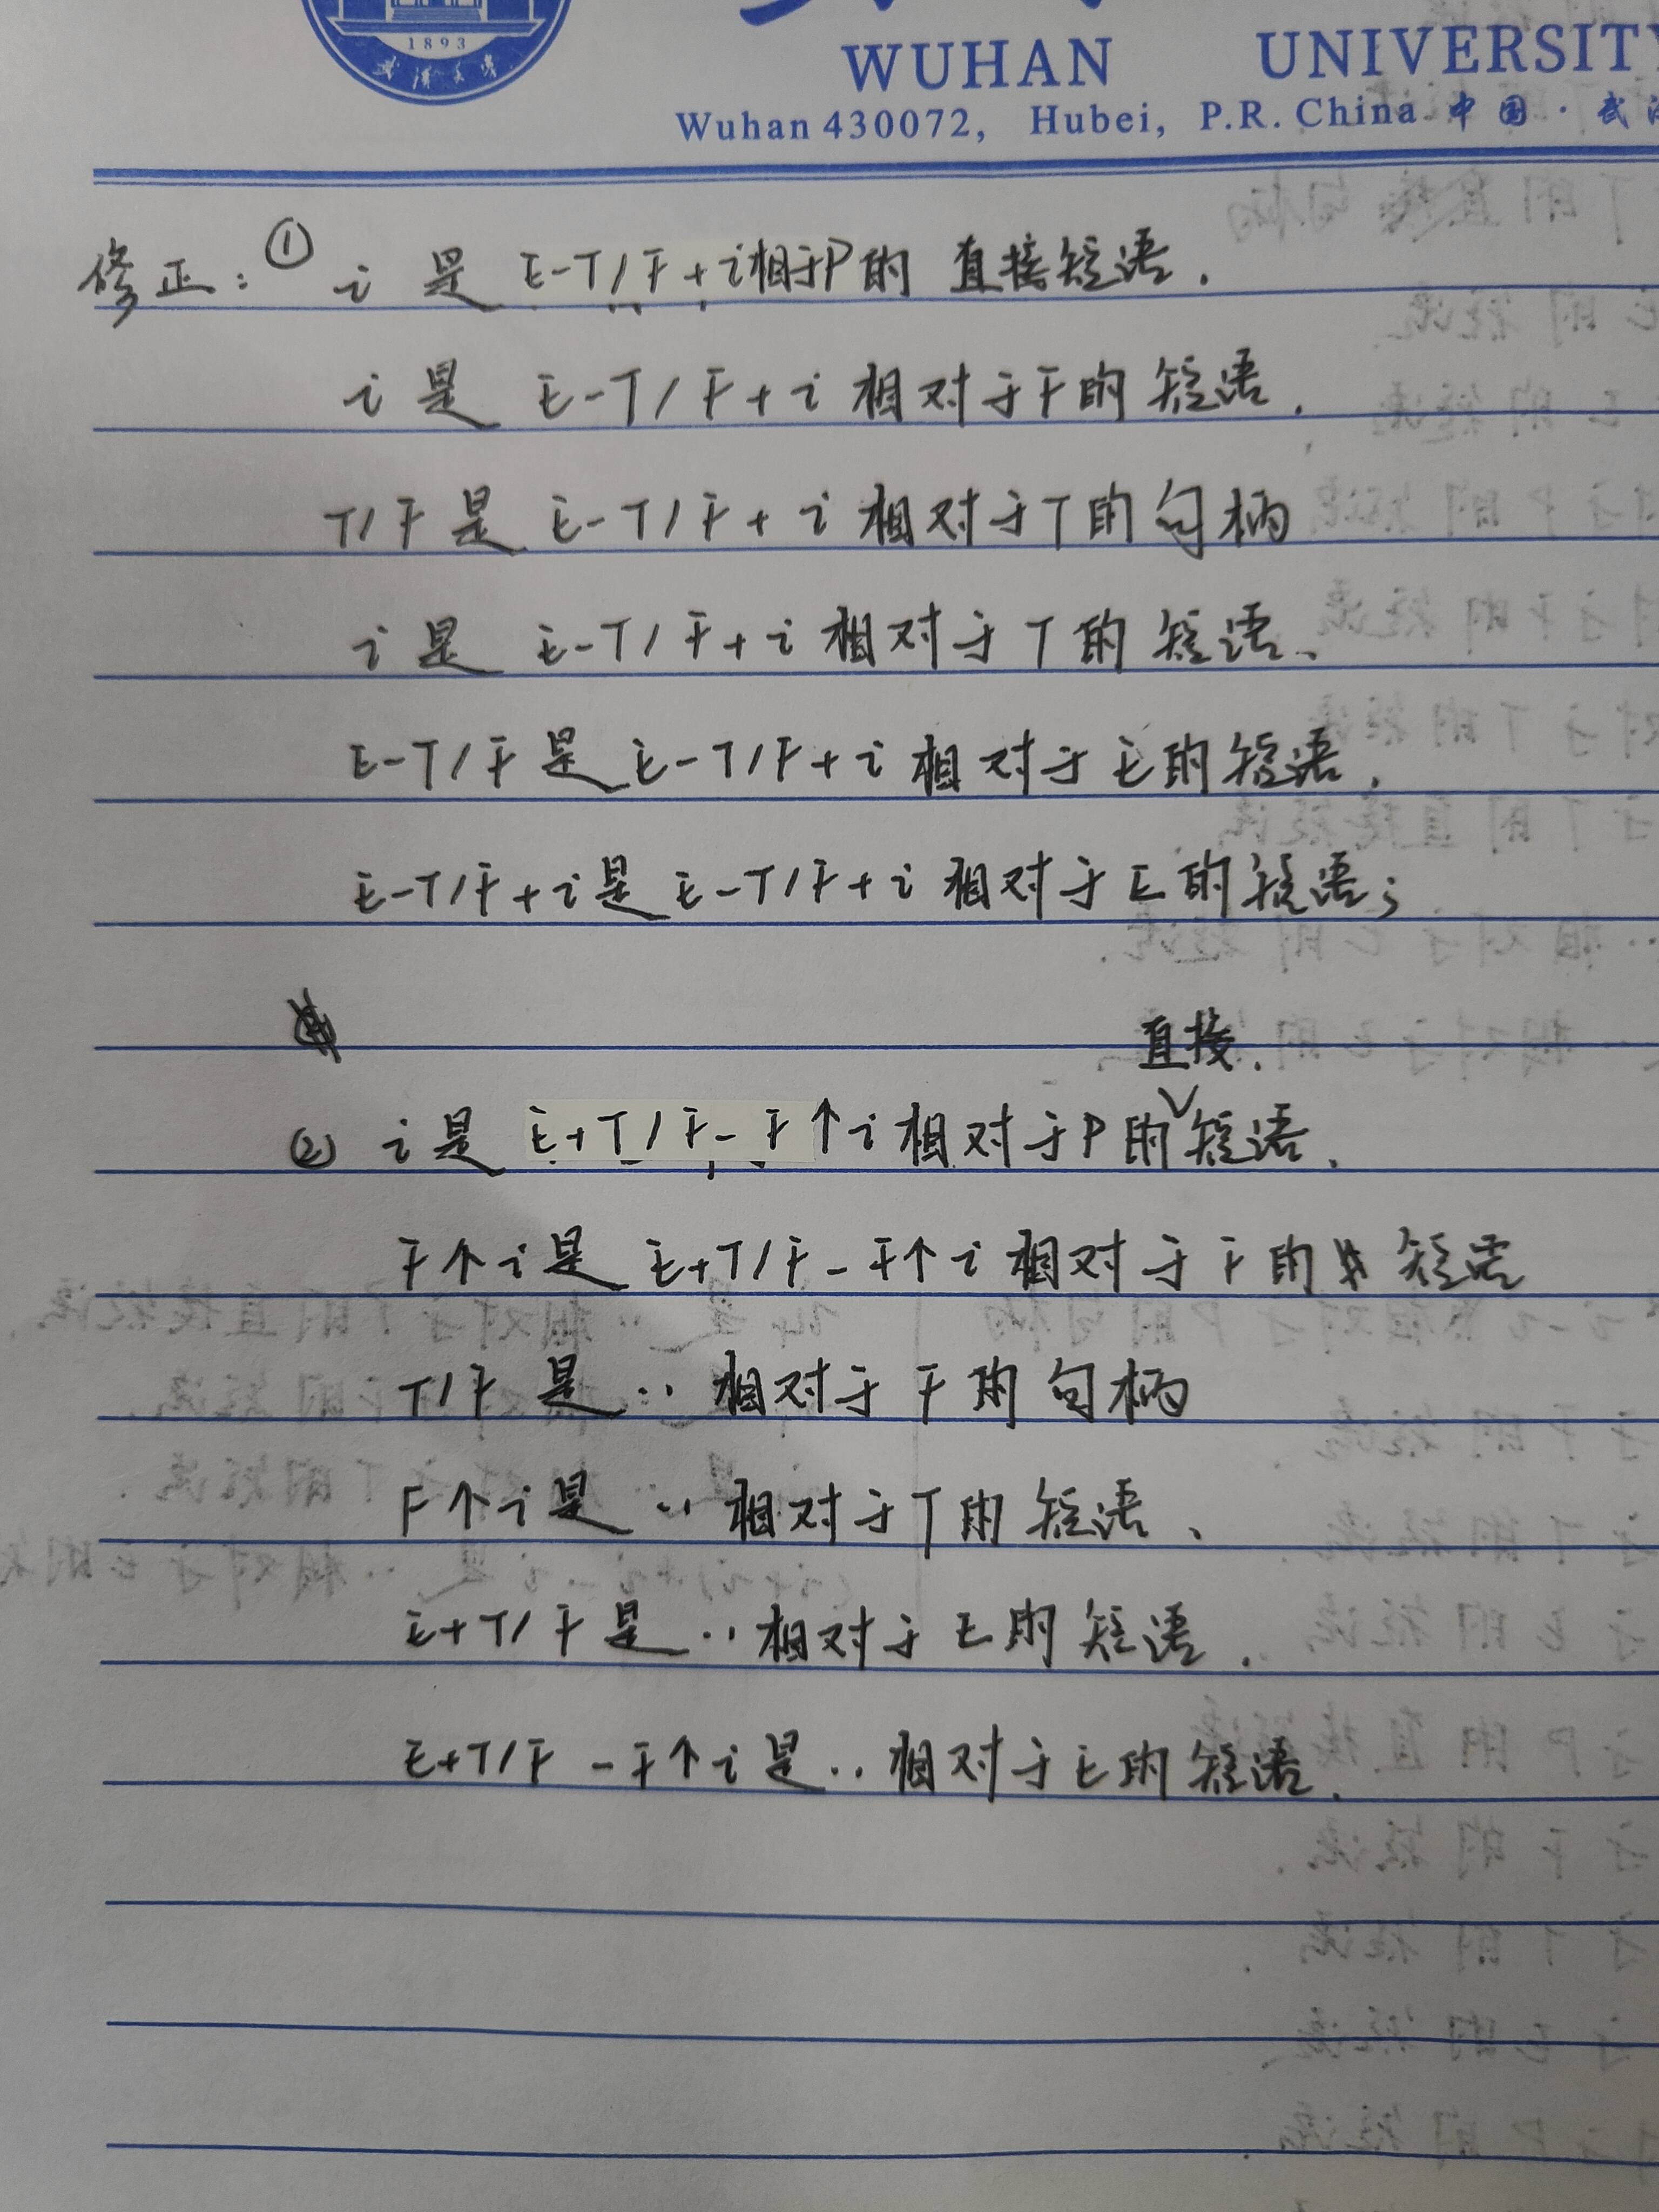 1893
WUHAN UNIVERSITY
Wuhan 430072, Hubei, P.R. China 中国·武
修正：① i 是 E-T/F+i相于P的 直接短语.
i 是 E-T/F+i 相对于F的 短语.
T/F 是 E-T/F+i 相对于T的 句柄
i 是 E-T/F+i 相对于 T 的 短语、
E-T/F 是 E-T/F+i 相对于 E的短语.
E-T/F+i是 E-T/F+i 相对于 E 的 短语;
直接.
② i 是 E+T/F-F↑i 相对于P 的∨短语.
F↑i是 E+T/F-F↑i 相对于 F 的 短语
T/F 是 ‥ 相对于 F 的 句柄
F↑i是 ‥ 相对于T的 短语、
E+T/F 是‥相对于 E的 短语.
E+T/F -F↑i是‥ 相对于E的 短语.